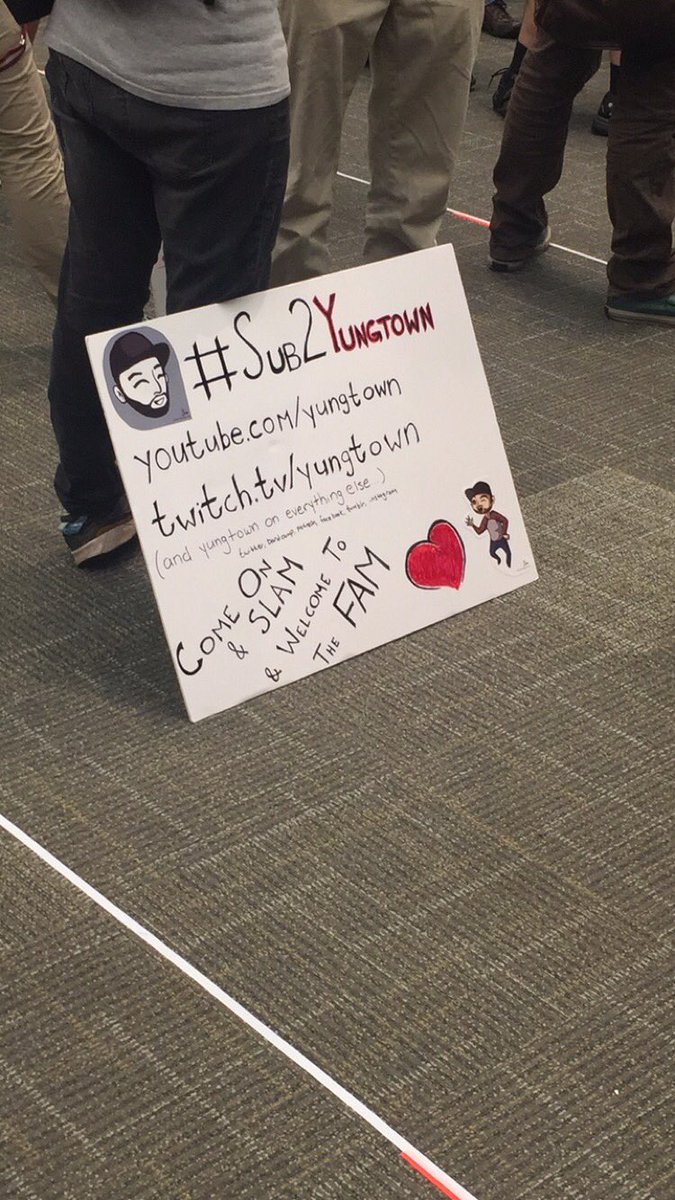 #Sub2Yungtown
youtube.com/yungtown
twitch.tv/yungtown
(and yungtown on everything else)
twitter, bandcamp, patreon, facebook, tumblr, instagram
COME ON
& SLAM
& WELCOME TO
THE FAM